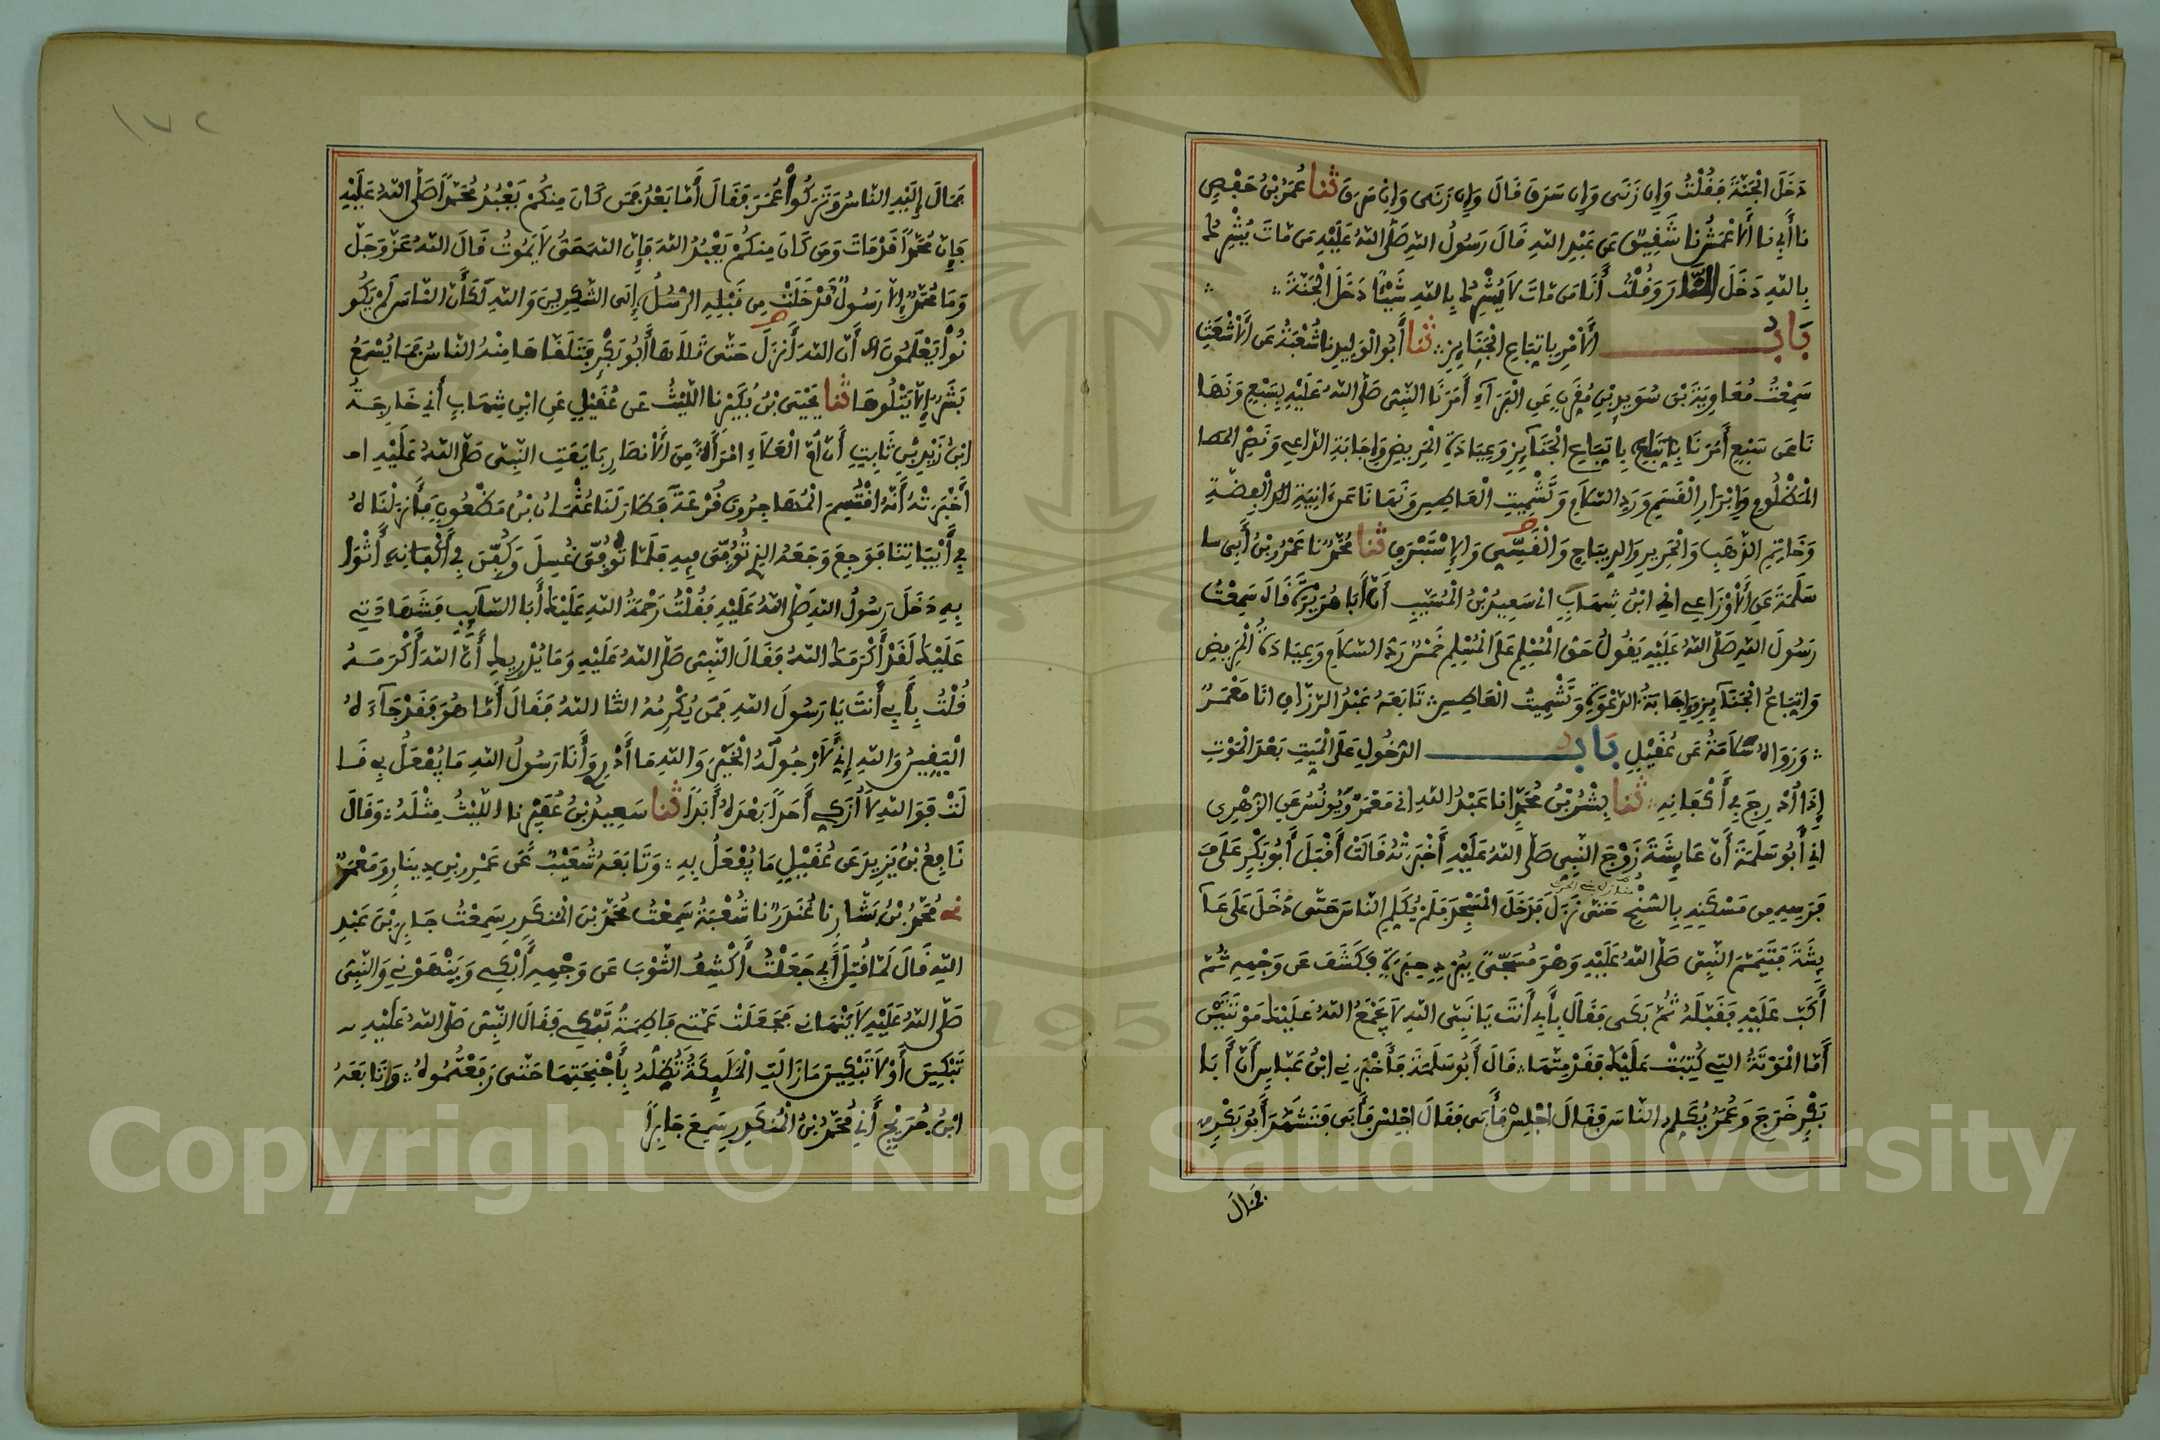 دَخَلَ الْجَنَّةَ فَقُلْتُ وَإِن زَنَى وَإِن سَرَقَ قَالَ وَإِن زَنَى وَإِنْ سَرَقَ ثنا عُمَرُ بْنُ حَفْصٍ
نا أَبِي نا الْأَعْمَشُ نا شَفِيقٌ عَن عَبْدِ اللهِ قَالَ رَسُولُ اللهِ صَلَّى اللهُ عَلَيْهِ مَن مَّاتَ يُشْرِكُ
بِاللهِ دَخَلَ النَّارَ وَقُلْتُ أَنَا مَن مَّاتَ لَا يُشْرِكُ بِاللهِ شَيْئًا دَخَلَ الْجَنَّةَ
بَابُ الْأَمْرِ بِاتِّبَاعِ الْجَنَايِزِ ثنا أَبُو الْوَلِيدِ نا شُعْبَةُ عَنِ الْأَشْعَثِ
سَمِعْتُ مُعَاوِيَةَ بْنَ سُوَيْدِ بْنِ مُقَرِّنٍ عَنِ الْبَرَآءِ أَمَرَنَا النَّبِيُّ صَلَّى اللهُ عَلَيْهِ بِسَبْعٍ وَنَهَا
نَا عَن سَبْعٍ أَمَرَنَا بِاتِّبَاعِ الْجَنَآيِزِ وَعِيَادَةِ الْمَرِيضِ وَإِجَابَةِ الدَّاعِي وَنَصْرِ
الْمَظْلُومِ وَإِبْرَارِ الْقَسَمِ وَرَدِّ السَّلَامِ وَتَشْمِيتِ الْعَاطِسِ وَنَهَانَا عَن آنِيَةِ الْفِضَّةِ
وَخَاتِمِ الذَّهَبِ وَالْحَرِيرِ وَالدِّيبَاجِ وَالْقَسِّيِّ وَالْإِسْتَبْرَقِ ثنا مُحَمَّدٌ نا عَمْرُو بْنُ أَبِي
سَلَمَةَ عَنِ الْأَوْزَاعِي اني ابْنُ شِهَابٍ اني سَعِيدُ بْنُ الْمُسَيَّبِ أَنَّ أَبَا هُرَيْرَةَ قَالَ سَمِعْتُ
رَسُولَ اللهِ صَلَّى اللهُ عَلَيْهِ يَقُولُ حَقُّ الْمُسْلِمِ عَلَى الْمُسْلِمِ خَمْسٌ رَدُّ السَّلَامِ وَعِيَادَةُ الْمَرِيضِ
وَاتِّبَاعُ الْجَنَآيِزِ وَإِجَابَةُ الدَّعْوَةِ وَتَشْمِيتُ الْعَاطِسِ تَابَعَهُ عَبْدُ الرَّزَّاقِ انَا مَعْمَرٌ
وَرَوَاهُ سَلَامَةُ عَن عُقَيْلٍ بَابُ الدُّخُولِ عَلَى الْمَيِّتِ بَعْدَ الْمَوْتِ
إِذَا أُدْرِجَ فِي أَكْفَانِهِ ثنا بِشْرُ بْنُ مُحَمَّدٍ انا عَبْدُ اللهِ اني مَعْمَرٌ وَيُونُسُ عَنِ الزُّهْرِي
اني أَبُو سَلَمَةَ أَنَّ عَايِشَةَ زَوْجَ النَّبِي صَلَّى اللهُ عَلَيْهِ أَخْبَرَتْهُ قَالَتْ أَقْبَلَ أَبُو بَكْرٍ عَلَى
فَرَسِهِ مِن مَسْكَنِهِ بِالسُّنْحِ حَتَّى نَزَلَ فَدَخَلَ الْمَسْجِدَ فَلَمْ يُكَلِّمِ النَّاسَ حَتَّى دَخَلَ عَلَى عَآ
يِشَةَ فَتَيَمَّمَ النَّبِيَّ صَلَّى اللهُ عَلَيْهِ وَهُوَ مُسَجًّى بِبُرْدِ حِبَرَةٍ فَكَشَفَ عَن وَجْهِهِ ثُمَّ
أَكَبَّ عَلَيْهِ فَقَبَّلَهُ ثُمَّ بَكَى فَقَالَ بِأَبِي أَنتَ يَا نَبِيَّ اللهِ لَا يَجْمَعُ اللهُ عَلَيْكَ مَوْتَتَيْنِ
أَمَّا الْمَوْتَةُ الَّتِي كُتِبَتْ عَلَيْكَ فَقَدْ مِتَّهَا قَالَ أَبُو سَلَمَةَ فَأَخْبَرَنِي ابْنُ عَبَّاسٍ أَنَّ أَبَا
بَكْرٍ خَرَجَ وَعُمَرُ يُكَلِّمُ النَّاسَ فَقَالَ اجْلِسْ فَأَبَى فَقَالَ اجْلِسْ فَأَبَى فَتَشَهَّدَ أَبُو بَكْرٍ
فَمَالَ
١٧٢
فَمَالَ إِلَيْهِ النَّاسُ وَتَرَكُواْ عُمَرَ فَقَالَ أَمَّا بَعْدُ فَمَن كَانَ مِنكُمْ يَعْبُدُ مُحَمَّدًا صَلَّى اللهُ عَلَيْهِ
فَإِنَّ مُحَمَّدًا قَدْ مَاتَ وَمَن كَانَ مِنكُمْ يَعْبُدُ اللهَ فَإِنَّ اللهَ حَيٌّ لَا يَمُوتُ قَالَ اللهُ عَزَّ وَجَلَّ
وَمَا مُحَمَّدٌ إِلَّا رَسُولٌ قَدْ خَلَتْ مِن قَبْلِهِ الرُّسُلُ إِلَى الشَّاكِرِينَ وَاللهِ لَكَأَنَّ النَّاسَ لَمْ يَكُو
نُواْ يَعْلَمُونَ أَنَّ اللهَ أَنزَلَ حَتَّى تَلَاهَا أَبُو بَكْرٍ فَتَلَقَّاهَا مِنْهُ النَّاسُ فَمَا يُسْمَعُ
بَشَرٌ إِلَّا يَتْلُوهَا ثنا يَحْيَى بْنُ بُكَيْرٍ نا اللَّيْثُ عَن عُقَيْلٍ عَنِ ابْنِ شِهَابٍ أَنِي خَارِجَةُ
ابْنُ زَيْدِ بْنِ ثَابِتٍ أَنَّ أُمَّ الْعَلَاءِ امْرَأَةً مِّنَ الْأَنصَارِ بَايَعَتِ النَّبِيَّ صَلَّى اللهُ عَلَيْهِ
أَخْبَرَتْهُ أَنَّهُ اقْتُسِمَ الْمُهَاجِرُونَ قُرْعَةً فَطَارَ لَنَا عُثْمَانُ بْنُ مَظْعُونٍ فَأَنزَلْنَاهُ
فِي أَبْيَاتِنَا فَوَجِعَ وَجَعَهُ الذِي تُوُفِّيَ فِيهِ فَلَمَّا تُوُفِّيَ غُسِلَ وَكُفِّنَ فِي أَثْوَا
بِهِ دَخَلَ رَسُولُ اللهِ صَلَّى اللهُ عَلَيْهِ فَقُلْتُ رَحْمَةُ اللهِ عَلَيْكَ أَبَا السَّايِبِ فَشَهَادَتِي
عَلَيْكَ لَقَدْ أَكْرَمَكَ اللهُ فَقَالَ النَّبِيُّ صَلَّى اللهُ عَلَيْهِ وَمَا يُدْرِيكِ أَنَّ اللهَ أَكْرَمَهُ
قُلْتُ بِأَبِي أَنتَ يَا رَسُولَ اللهِ فَمَن يُكْرِمُهُ اللهُ فَقَالَ أَمَّا هُوَ فَقَدْ جَآءَهُ
الْيَقِينُ وَاللهِ إِنِّي لَأَرْجُو لَهُ الْخَيْرَ وَاللهِ مَا أَدْرِي وَأَنَا رَسُولُ اللهِ مَا يُفْعَلُ بِي قَا
لَتْ فَوَاللهِ لَا أُزَكِّي أَحَدًا بَعْدَهُ أَبَدًا ثنا سَعِيدُ بْنُ عُفَيْرٍ نا اللَّيْثُ مِثْلَهُ وَقَالَ
نَافِعُ بْنُ يَزِيدَ عَن عُقَيْلٍ مَا يُفْعَلُ بِهِ وَتَابَعَهُ شُعَيْبٌ عَن عَمْرِو بْنِ دِينَارٍ وَمَعْمَرٌ
مُحَمَّدُ بْنُ بَشَّارٍ نا غُنْدَرٌ نا شُعْبَةُ سَمِعْتُ مُحَمَّدَ بْنَ الْمُنكَدِرِ سَمِعْتُ جَابِرَ بْنَ عَبْدِ
اللهِ قَالَ لَمَّا قُتِلَ أَبِي جَعَلْتُ أَكْشِفُ الثَّوْبَ عَن وَجْهِهِ أَبْكِي وَيَنْهَوْنِي وَالنَّبِيُّ
صَلَّى اللهُ عَلَيْهِ لَا يَنْهَانِي فَجَعَلَتْ عَمَّتِي فَاطِمَةُ تَبْكِي فَقَالَ النَّبِيُّ صَلَّى اللهُ عَلَيْهِ
تَبْكِينَ أَوْ لَا تَبْكِينَ مَا زَالَتِ الْمَلَيِكَةُ تُظِلُّهُ بِأَجْنِحَتِهَا حَتَّى رَفَعْتُمُوهُ وَتَابَعَهُ
ابْنُ جُرَيْجٍ أَنِي مُحَمَّدُ بْنُ الْمُنكَدِرِ سَمِعَ جَابِرًا
Copyright © King Saud University